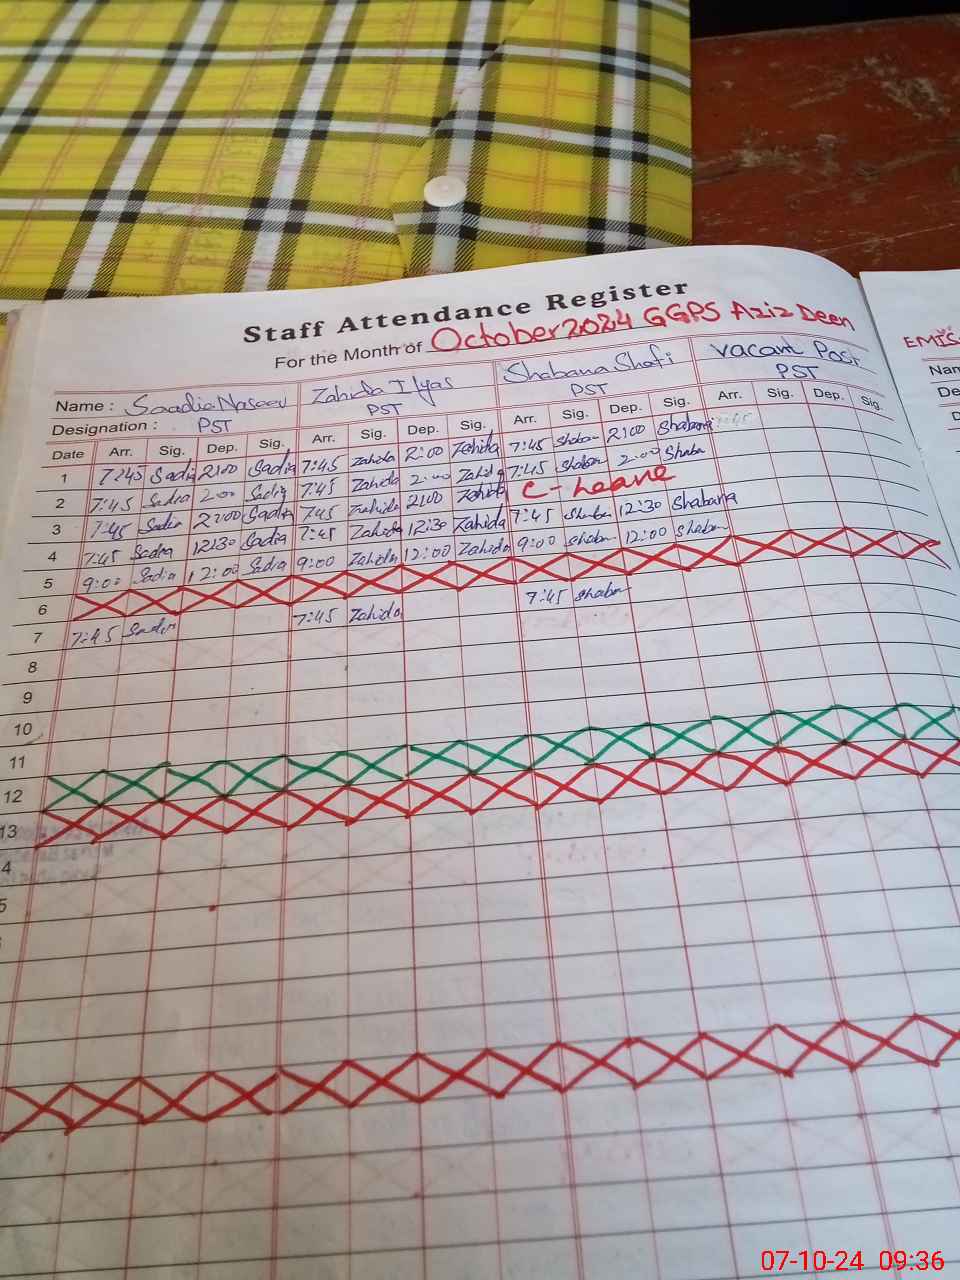 Staff Attendance Register
For the Month of October 2024 GGPS Aziz Deen
EMIS
Name : Saadia Naseer Zahida Ilyas Shabana Shafi Vacant Post
Nam
Designation : PST PST PST PST
De
Date Arr. Sig. Dep. Sig. Arr. Sig. Dep. Sig. Arr. Sig. Dep. Sig. Arr. Sig. Dep. Sig.
1 7:45 Sadia 2:00 Sadia 7:45 Zahida 2:00 Zahida 7:45 Shaban 2:00 Shabana 7:45
2 7:45 Sadia 2:00 Sadia 7:45 Zahida 2:00 Zahida 7:45 Shaban 2:00 Shaba
3 7:45 Sadia 2:00 Sadia 7:45 Zahida 2:00 Zahida C-Leave
4 7:45 Sadia 12:30 Sadia 7:45 Zahida 12:30 Zahida 7:45 Shaba 12:30 Shabana
5 9:00 Sadia 12:00 Sadia 9:00 Zahida 12:00 Zahida 9:00 Shaban 12:00 Shaban
6
7 7:45 Sadia 7:45 Zahida 7:45 Shaban
8
9
10
11
12
13
4
5
07-10-24 09:36